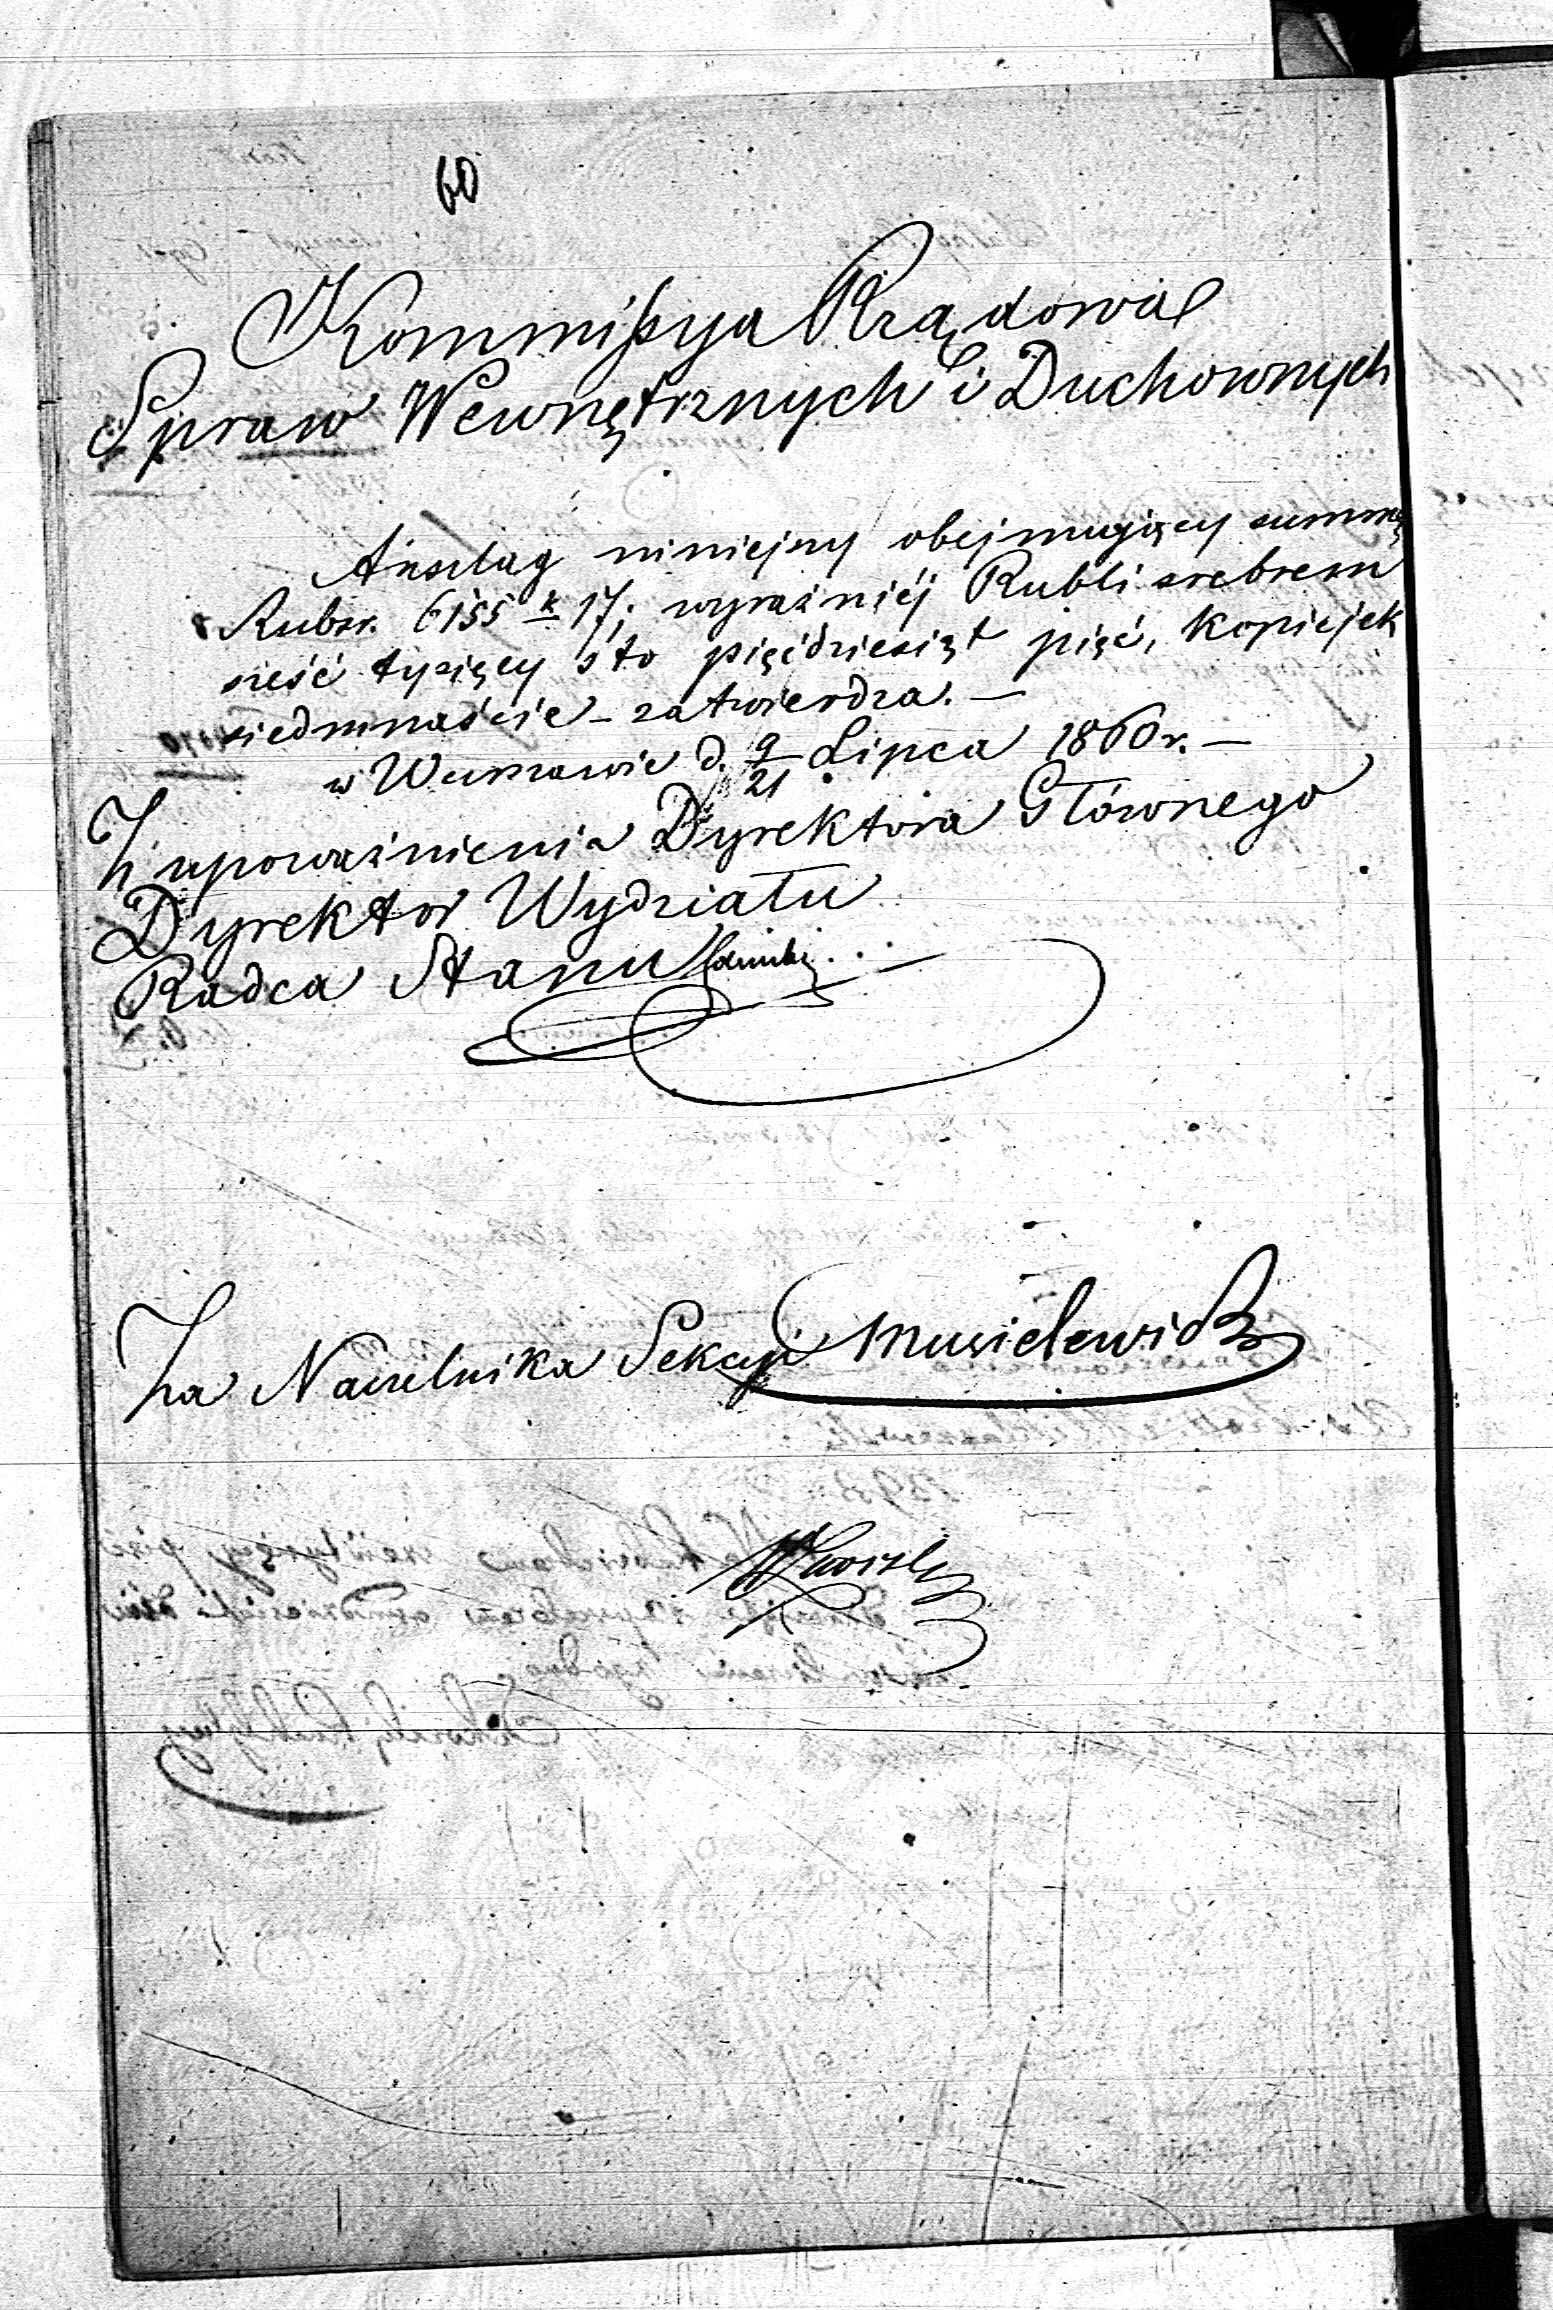 60
Kommissya Rządowa
Spraw Wewnętrznych i Duchownych
Anszlag niniejszy obejmujący summę
Rubsr. 6155 k 17; wyraźniéj Rubli srebrem
sześć tysięcy sto pięćdziesiąt pięć, kopiejek
siedmnaście – zatwierdza. –
w Warszawie d. 9/21 Lipca 1860 r. –
Z upoważnienia Dyrektora Głównego
Dyrektor Wydziału
Radca Stanu
Za Naczelnika Sekcyi Musielewicz